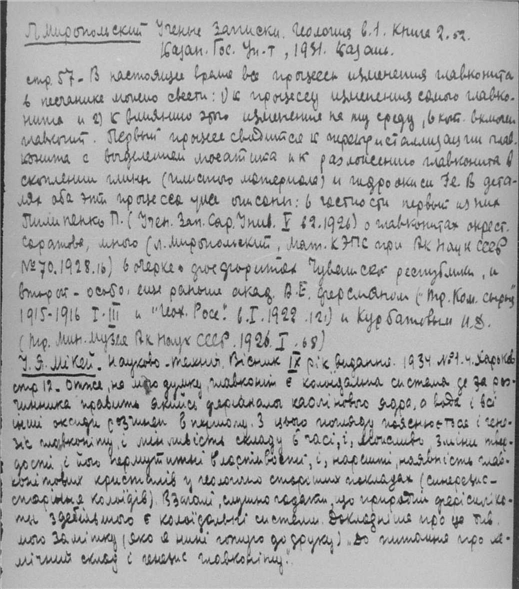 Л. Миропольский Ученые Записки. Геология в.1. Книга 2.
Казан. Гос. Ун-т, 1931. Казань.
стр. 57 - В настоящее время все процессы изменения глауконита
в песчанике можно свести: 1) к процессу изменения самого глауко-
нита и 2) к влиянию этого изменения на ту среду, в кот. включен
глауконит. Первый процесс сводится к перекристаллизации глау-
конита с выделением и к разложению глауконита в
скоплении глины (глинистого материала) и гидроокиси Fe. В дета-
лях оба эти процесса уже описаны: в частности первый из них
Пилипенко П. (Учен. Зап. Сар. Унив. V в2. 1926) о глауконитах окрест.
Саратова, мною (Л. Миропольский, Мат. КЭПС при Ак Наук СССР
№70. 1928. 16) в очерке о фосфоритах Чувашской республики, и
второй - особо, еще раньше акад. А.Е. Ферсманом (Тр. Ком. сырья
1915-1916 I-III и "Геох. Росс. в. I. 1922. 121) и Курбатовым И.Д.
(Тр. Мин. Музея Ак Наук СССР. 1926. I. 68)
Науково-техніч. Вісник IX рік видання. 1934 №1-4. Харьков
стр 12. Отже, на мою думку, глауконіт є колоїдальна система де за роз-
чинника править якийсь ферігалоы каолінового ядра, а вода і всі
інші оксиди розчинен в ньому. З цього погляду пояснюється і гене-
зіс глауконіту і мінливість складу в часі, і, можливо, зміни твер-
дости і його пермутитні властивості, і, нарешті, наявність глау-
конітових кристалів у геологічно старіших покладах (синерезис-
старіння колоїдів). Взагалі, слушно гадати, що природні феросиліка-
ти здебільшого є колоїдальні системи. Докладніше про це див.
мою замітку (яко я нині готую до друку) "До питання про хе-
мічний склад і генезис глауконіту".